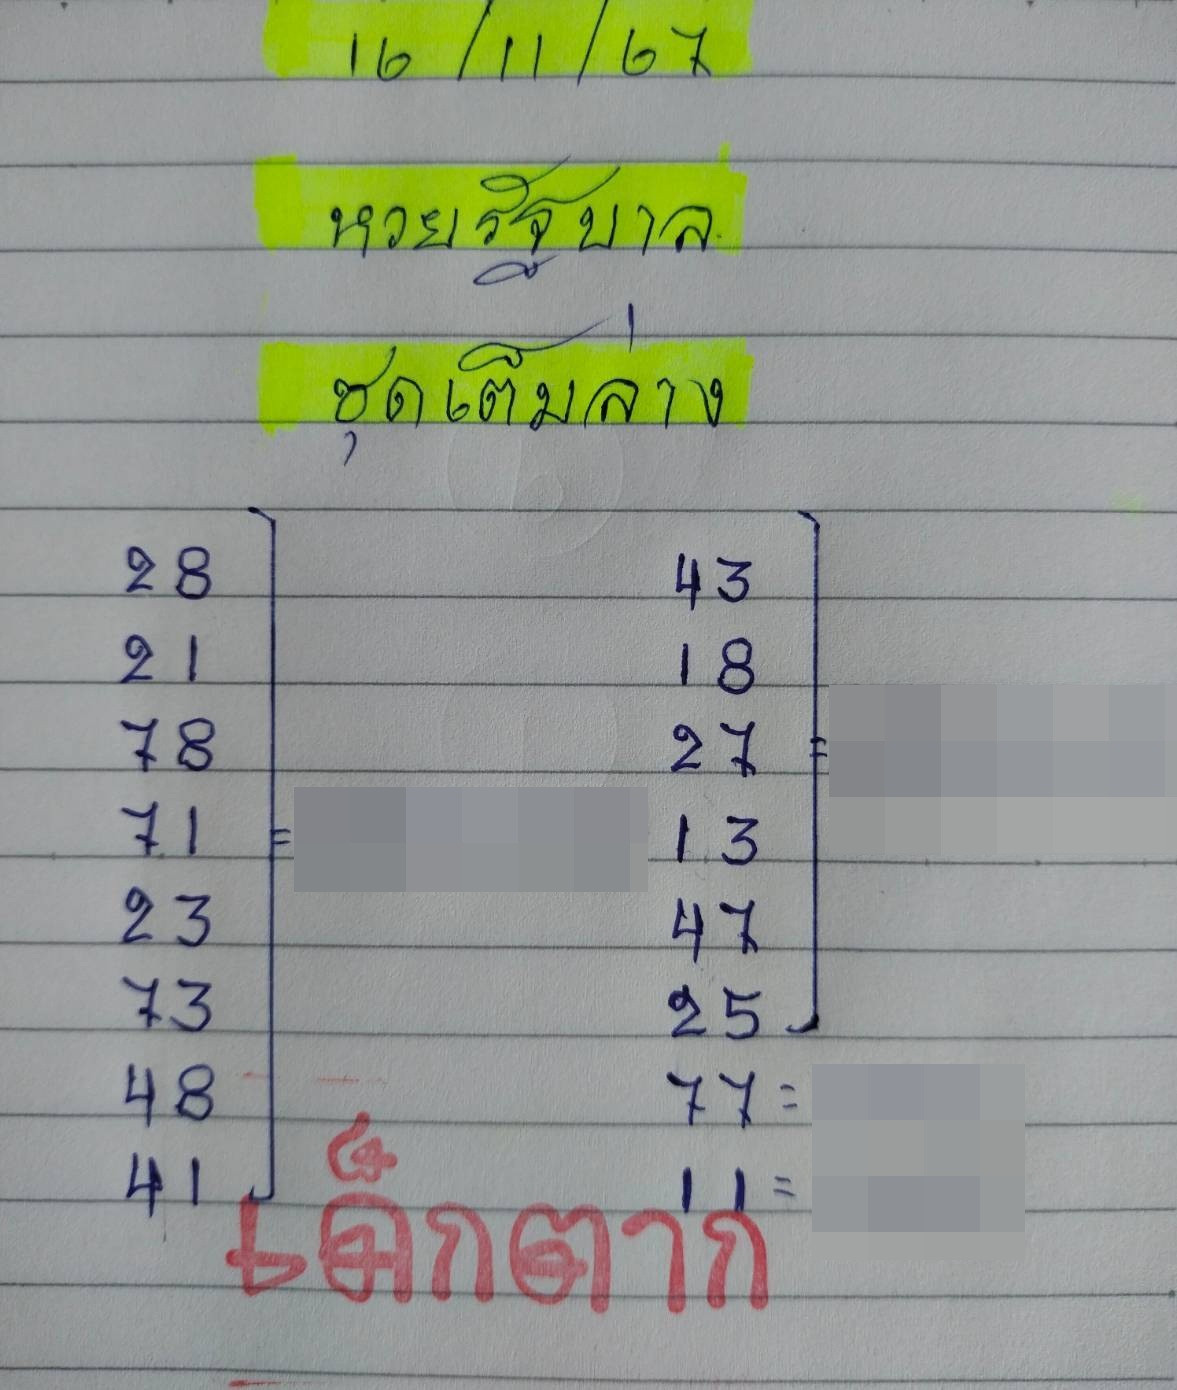 16/11/67
หวยรัฐบาล
ชุดเต็มล่าง
28
21
78
71 =
23
73
48
41
43
18
27 =
13
47
25
77 =
11 =